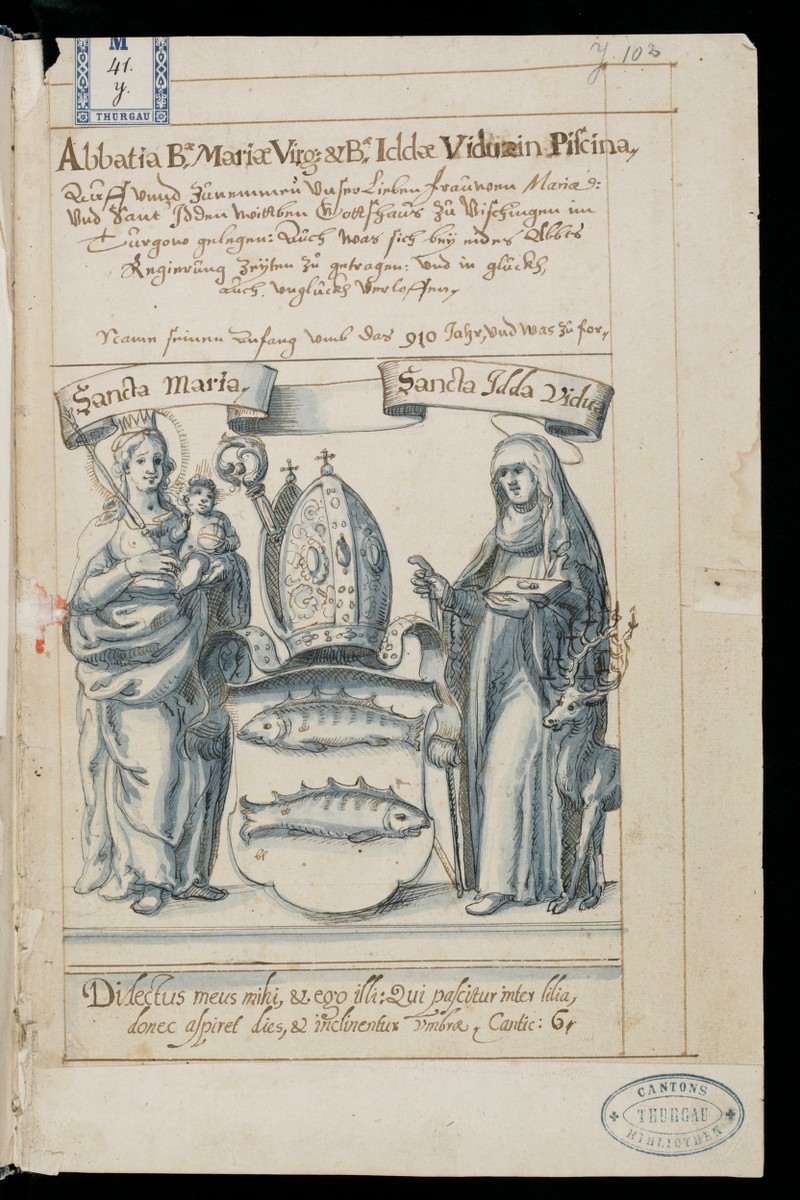 M
41.
y.
THURGAU
y. 102
Abbatia B.æ Mariæ Virg: & B.æ Iddæ Viduæ in Piscina,
Auff vnnd Zunemmen vnser Lieben Frauwen Mariæ
Vnd Sant Idden wittben Gottshaus zu Vischingen im
Turgow gelegen: Auch was sich bey eines Abbts
Regierung Zeyten zu getragen: vnd in glückh,
auch vnglückh verloffen,
Name seinen Anfang vmb das 910 Jahr, vnd was zu for,
Sancta Maria,
Sancta Idda Vidua
Dilectus meus mihi, & ego illi: Qui pascitur inter lilia,
donec aspiret dies, & inclinentur vmbræ, Cantic: 6,
CANTONS
THURGAU
BIBLIOTHEK